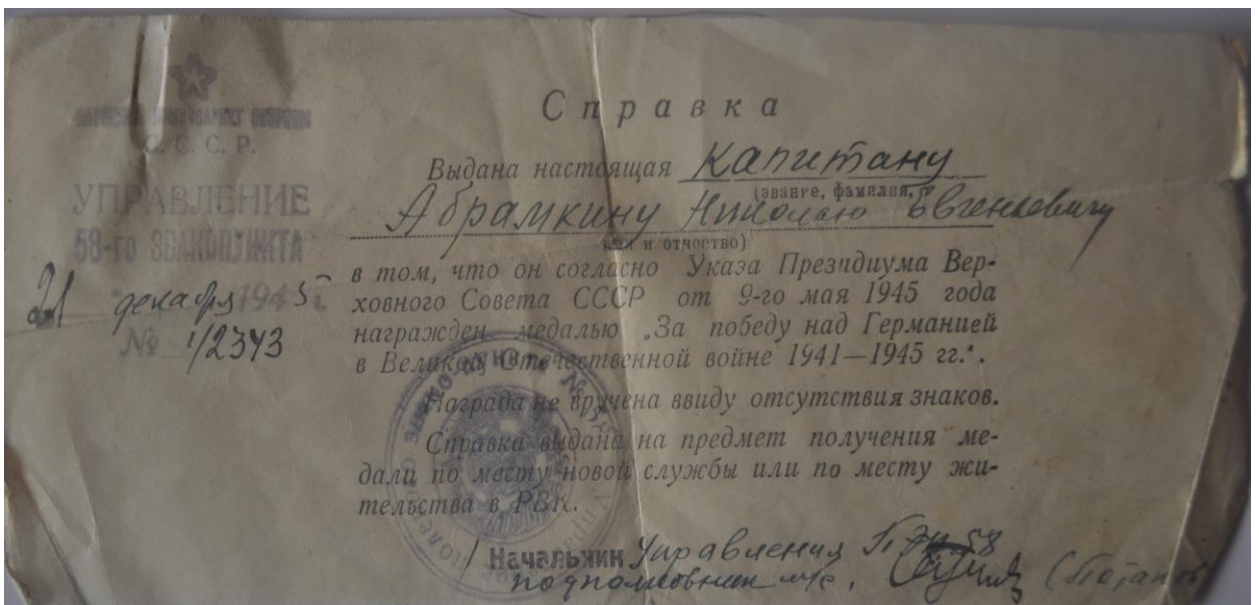 НАРОДНЫЙ КОМИССАРИАТ ОБОРОНЫ
С. С. С. Р.
УПРАВЛЕНИЕ
58-го ЭВАКОПУНКТА
21 декабря 1945 г.
№ 1/2343
Справка
Выдана настоящая Капитану
(звание, фамилия,
Абрамкину Николаю Евгеньевичу
имя и отчество)
в том, что он согласно Указа Президиума Вер-
ховного Совета СССР от 9-го мая 1945 года
награжден медалью „За победу над Германией
в Великой Отечественной войне 1941—1945 гг.".
Награда не вручена ввиду отсутствия знаков.
Справка выдана на предмет получения ме-
дали по месту новой службы или по месту жи-
тельства в РВК.
Начальник Управления ПЭП 58
подполковник м/с. (Потапов